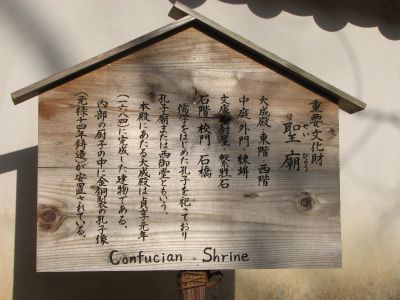 重要文化財
せいびょう
聖廟
大成殿 東階 西階
中庭 外門 練塀
文庫 厨屋 繋牲石
石階 校門 石橋
儒学をはじめた孔子を祀っており
孔子廟または西御堂ともいう。
本殿にあたる大成殿は貞享元年
(一六八四)に完成した建物である。
内部の厨子の中に金銅製の孔子像
(元禄十四年鋳造)が安置されている。
Confucian Shrine